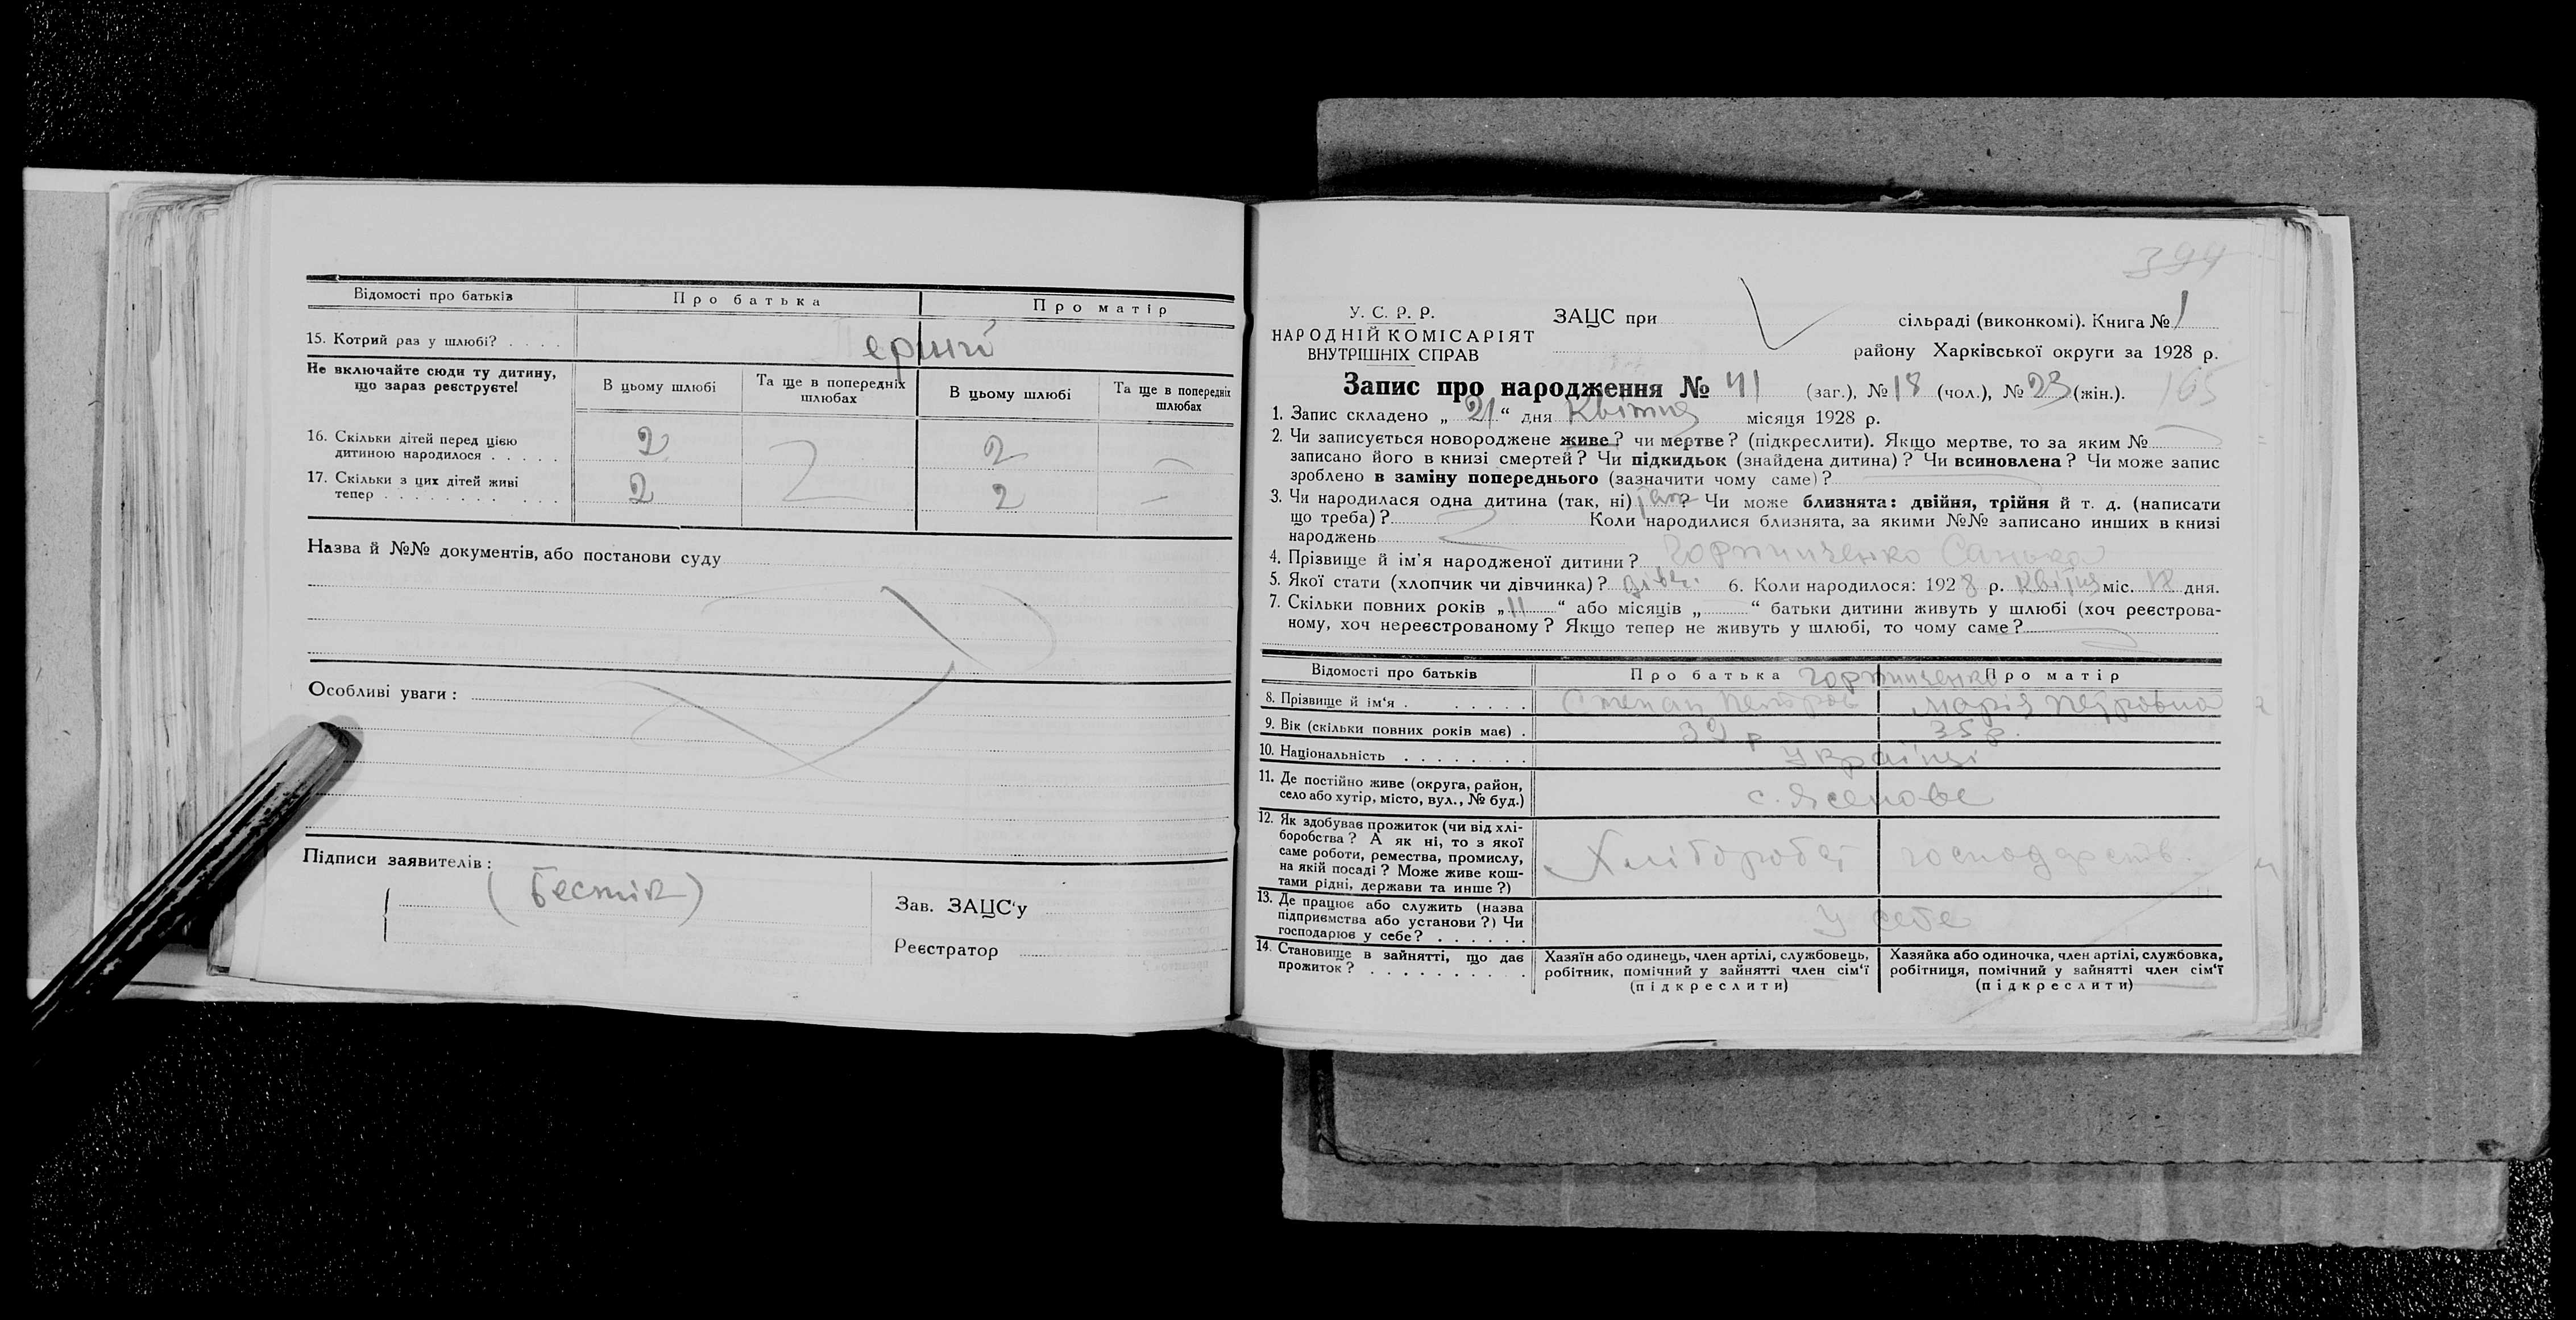 Відомості про батьків Про батька Про матір
15. Котрий раз у шлюбі? . . . .
Не включайте сюди ту дитину, що зараз реєструєте!
В цьому шлюбі Та ще в попередніх шлюбах В цьому шлюбі Та ще в попередніх шлюбах
16. Скільки дітей перед цією
дитиною народилося . . . . . 2 2 —
17. Скільки з цих дітей живі
тепер . . . . . . . . . . . 2 2 —
Назва й №№ документів, або постанови суду
Особливі уваги :
Підписи заявителів :
Зав. ЗАЦС'у
Реєстратор
394
У. С. Р. Р.
НАРОДНІЙ КОМІСАРІЯТ
ВНУТРІШНІХ СПРАВ
ЗАЦС при сільраді (виконкомі). Книга № 1
району Харківської округи за 1928 р.
165
Запис про народження № 41 (заг.), № 18 (чол.), № 23 (жін.).
1. Запис складено „ 21 “ дня Квітня місяця 1928 р.
2. Чи записується новороджене живе? чи мертве? (підкреслити). Якщо мертве, то за яким №
записано його в книзі смертей? Чи підкидьок (знайдена дитина)? Чи всиновлена? Чи може запис
зроблено в заміну попереднього (зазначити чому саме)?
3. Чи народилася одна дитина (так, ні) ? Чи може близнята: двійня, трійня й т. д. (написати
що треба)? Коли народилися близнята, за якими №№ записано инших в книзі
народжень
4. Прізвище й ім'я народженої дитини?
5. Якої стати (хлопчик чи дівчинка)? дівч. 6. Коли народилося: 1928 р. Квітня міс. 18 дня.
7. Скільки повних років „ 11 “ або місяців „ “ батьки дитини живуть у шлюбі (хоч реєстрова-
ному, хоч нереєстрованому? Якщо тепер не живуть у шлюбі, то чому саме?
Відомості про батьків Про батька Про матір
8. Прізвище й ім'я . . . . . . Степан Петров Марія Петровна
9. Вік (скільки повних років має) . 39 р 35 р.
10. Національність . . . . . . . . Українці
11. Де постійно живе (округа, район,
село або хутір, місто, вул., № буд.) с. Ясенове
12. Як здобуває прожиток (чи від хлі-
боробства? А як ні, то з якої
саме роботи, ремества, промислу,
на якій посаді? Може живе кош-
тами рідні, держави та инше?)
13. Де працює або служить (назва
підприємства або установи?) Чи
господарює у себе? . . . . . . у себе
14. Становище в зайнятті, що дає
прожиток? . . . . . . . . . .
Хазяїн або одинець, член артілі, службовець,
робітник, помічний у зайнятті член сім'ї
(підкреслити)
Хазяйка або одиночка, член артілі, службовка,
робітниця, помічний у зайнятті член сім'ї
(підкреслити)